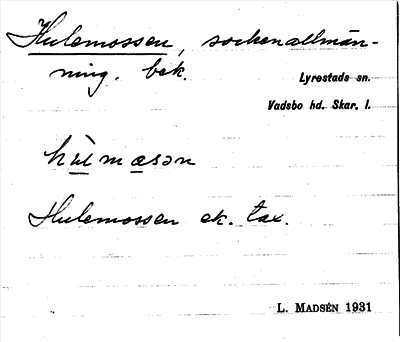 Hulemossen, sockenallmän-
ning. bek.
Lyrestads sn.
Vadsbo hd. Skar. l.
Hulemossen ek. tax.
L. MADSÉN 1931